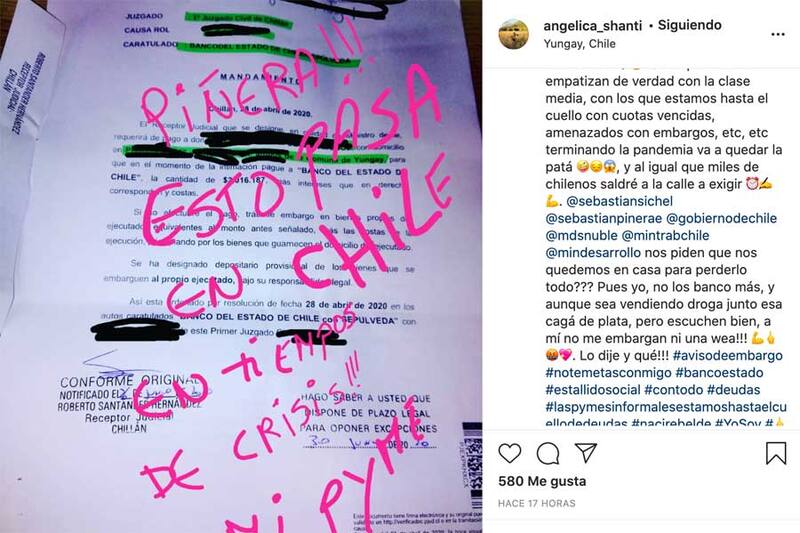 JUZGADO : 1º Juzgado Civil de Chillán
CAUSA ROL :
CARATULADO : BANCO DEL ESTADO DE
MANDAMIENTO
Chillán, 28 de abril de 2020.
El Receptor Judicial que se designe, en
requerirá de pago a don
en comuna de Yungay, para
que en el momento de la intimación pague a "BANCO DEL ESTADO DE
CHILE", la cantidad de intereses que en derecho
correspondan y costas.
Si no efectuare el pago, trabe embargo en bienes propios del
ejecutado equivalentes al monto antes señalado, más las costas de la
ejecución, por los bienes que guarnecen el domicilio del ejecutado.
Se ha designado depositario provisional de los bienes que se
embarguen al propio ejecutado, bajo su responsabilidad legal.
Así está ordenado por resolución de fecha 28 de abril de 2020 en los
autos caratulados "BANCO DEL ESTADO DE CHILE con SEPULVEDA" con
este Primer Juzgado
PIÑERA!!!
ESTO PASA
EN CHILE
EN TIEMPOS
DE CRISIS!!!
NI PYME
ROBERTO SANTANDER HERNÁNDEZ
RECEPTOR JUDICIAL
CHILLÁN
CONFORME ORIGINAL
NOTIFICADO EL
ROBERTO SANTANDER HERNÁNDEZ
Receptor Judicial
CHILLÁN
HAGO SABER A USTED QUE
DISPONE DE PLAZO LEGAL
PARA OPONER EXCEPCIONES
Este documento tiene firma electrónica y su original puede ser
angelica_shanti • Siguiendo
Yungay, Chile
empatizan de verdad con la clase
media, con los que estamos hasta el
cuello con cuotas vencidas,
amenazados con embargos, etc, etc
terminando la pandemia va a quedar la
patá 🤪😔😱, y al igual que miles de
chilenos saldré a la calle a exigir ⏰✍
💪. @sebastiansichel
@sebastianpinerae @gobiernodechile
@mdsnuble @mintrabchile
@mindesarrollo nos piden que nos
quedemos en casa para perderlo
todo??? Pues yo, no los banco más, y
aunque sea vendiendo droga junto esa
cagá de plata, pero escuchen bien, a
mí no me embargan ni una wea!!! 💪🖕
🤬💖. Lo dije y qué!!! #avisodeembargo
#notemetasconmigo #bancoestado
#estallidosocial #contodo #deudas
#laspymesinformalesestamoshastaelcu
ellodedeudas #nacirebelde #YoSoy #🖕
580 Me gusta
HACE 17 HORAS